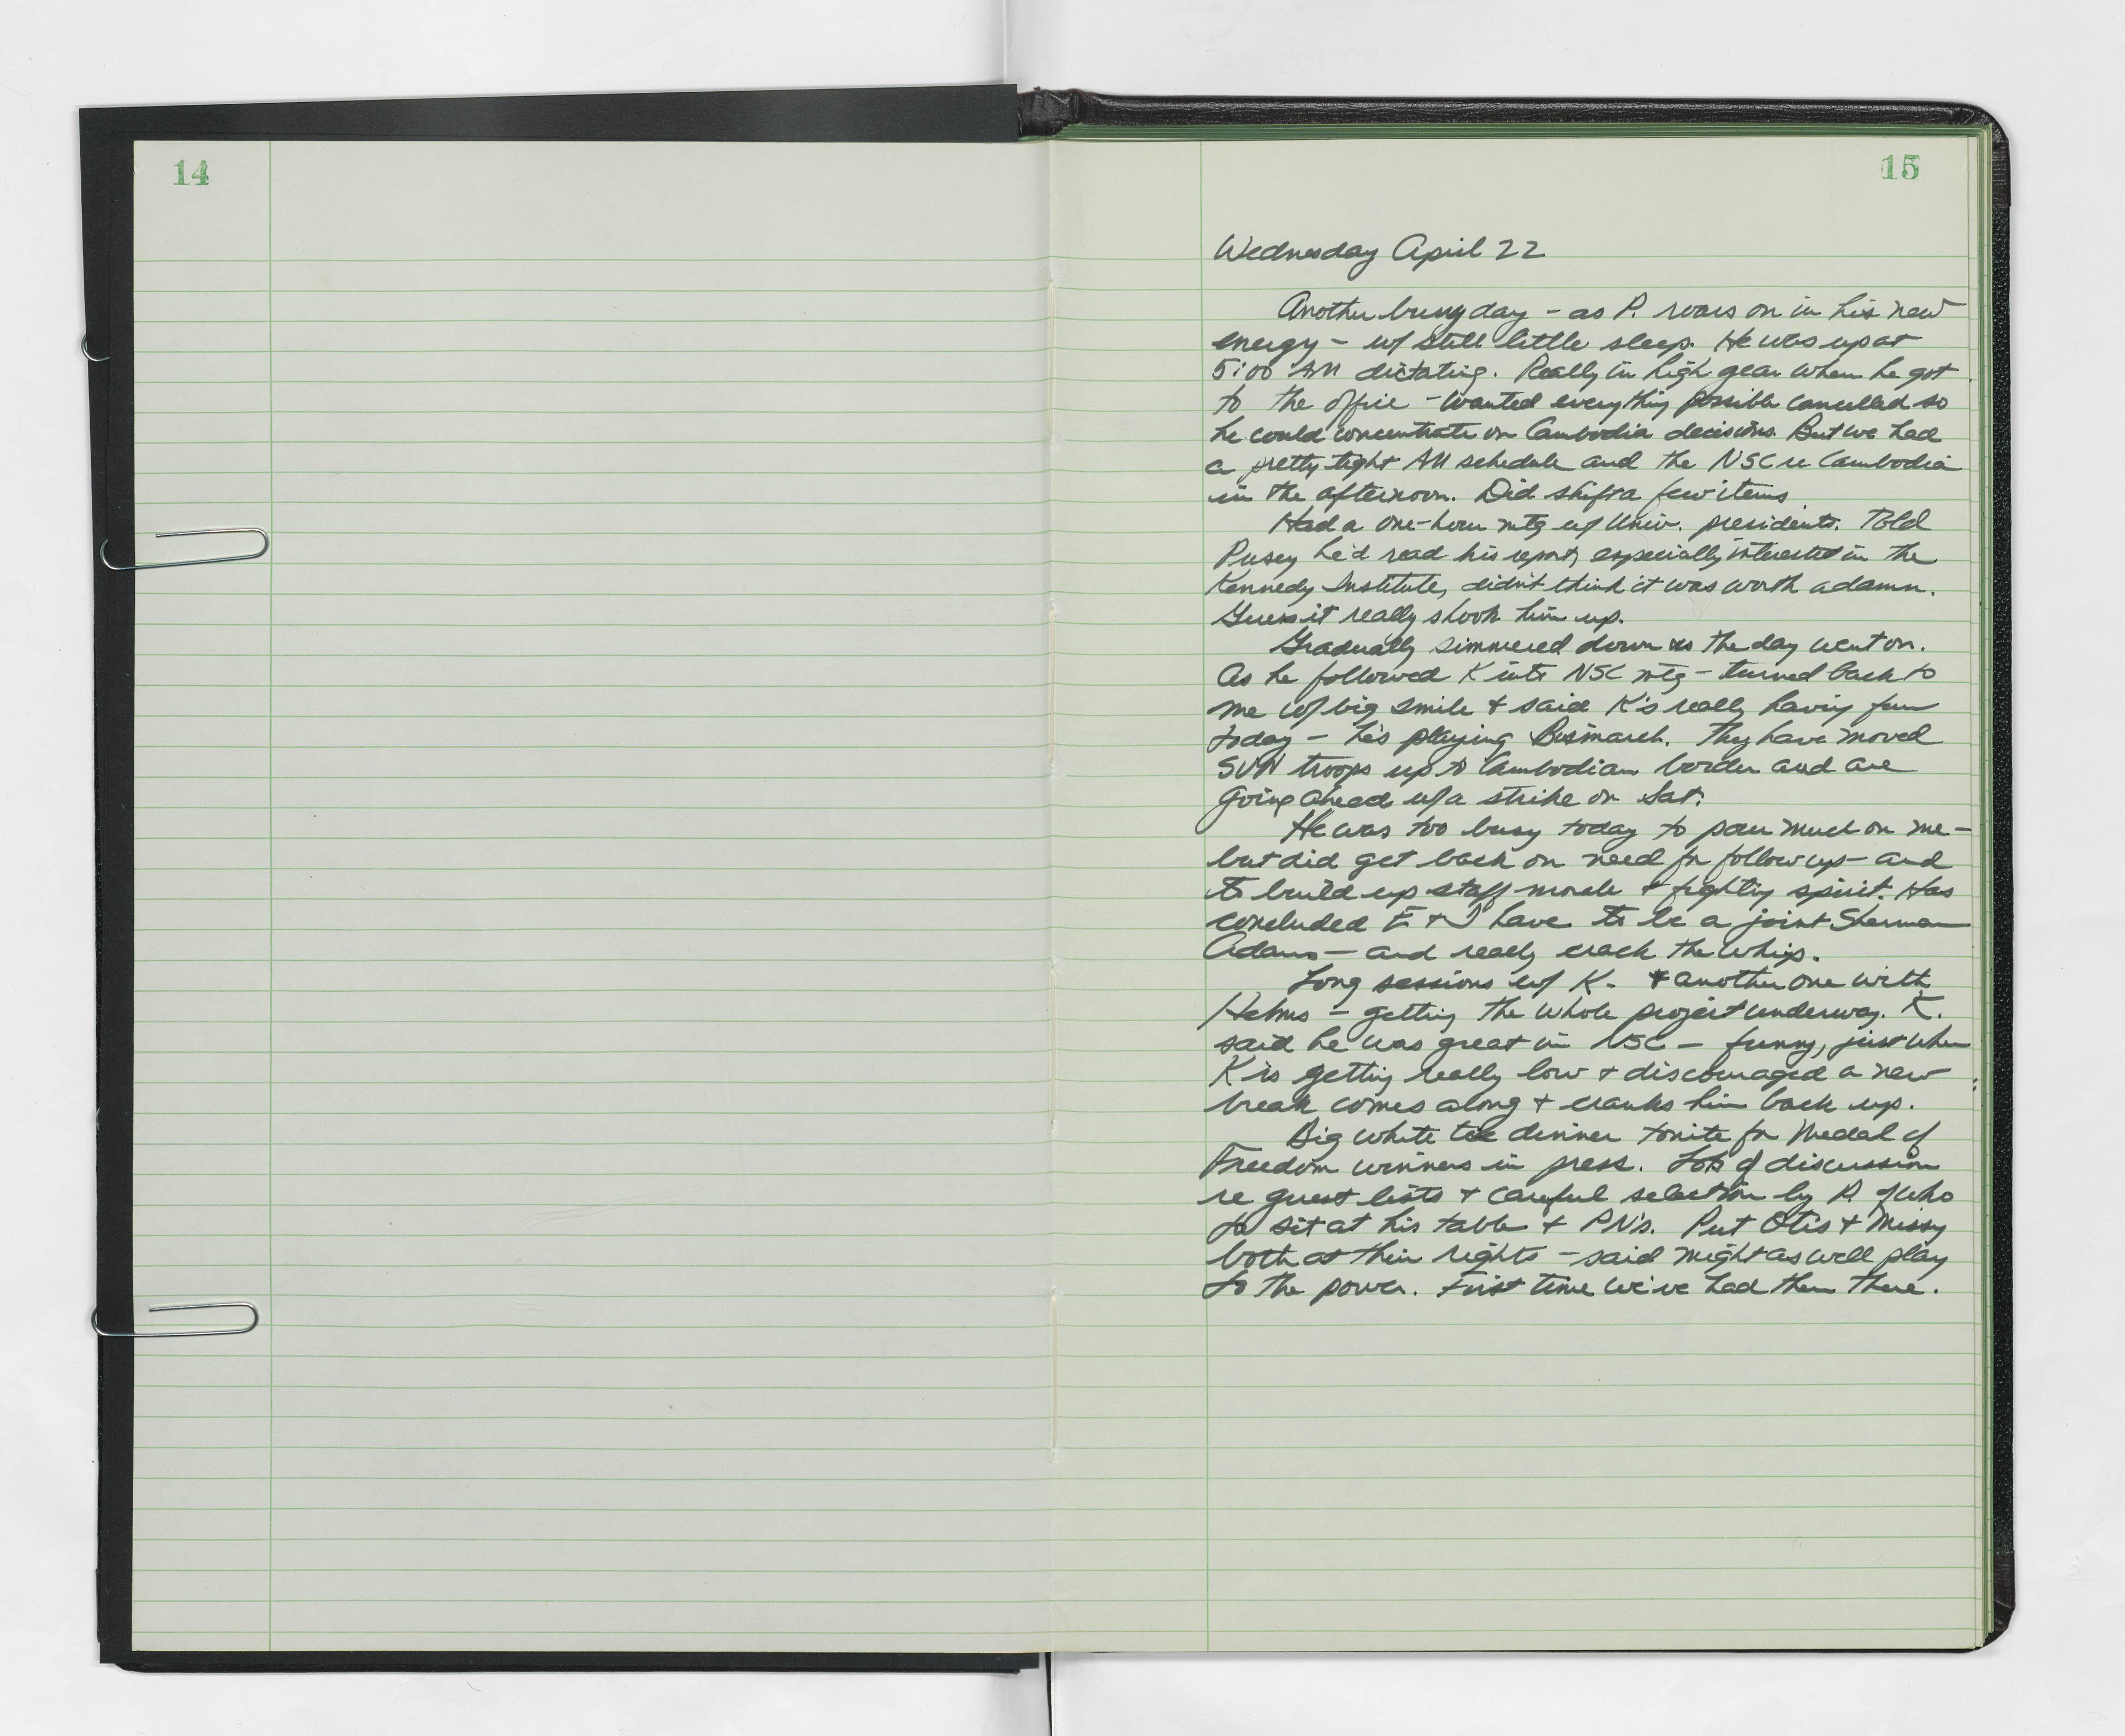 14
15
Wednesday April 22
Another busy day - as P. roars on in his new
energy - w/ still little sleep. He was up at
5:00 AM dictating. Really in high gear when he got
to the office - wanted everything possible cancelled so
he could concentrate on Cambodia decisions. But we had
a pretty tight AM schedule and the NSC re Cambodia
in the afternoon. Did shift a few items.
Had a one-hour mtg w/ Univ. presidents. Told
Pusey he'd read his report, especially interested in the
Kennedy Institute, didn't think it was worth a damn.
Guess it really shook him up.
Gradually simmered down as the day went on.
As he followed K into NSC mtg - turned back to
me w/ big smile + said K's really having fun
today - he's playing Bismarck. They have moved
SVN troops up to Cambodian border and are
going ahead w/ a strike on Sat.
He was too busy today to pour much on me -
but did get back on need for follow up - and
to build up staff morale + fighting spirit. Has
concluded E + I have to be a joint Sherman
Adams - and really crack the whip.
Long sessions w/ K. + another one with
Helms - getting the whole project underway. K.
said he was great in NSC - funny, just when
K is getting really low + discouraged a new
break comes along + cranks him back up.
Big white tie dinner tonite for Medal of
Freedom winners in press. Lots of discussion
re guest lists + careful selection by P. of who
to sit at his table + PN's. Put Otis + Missy
both at their rights - said might as well play
to the power. First time we've had them there.